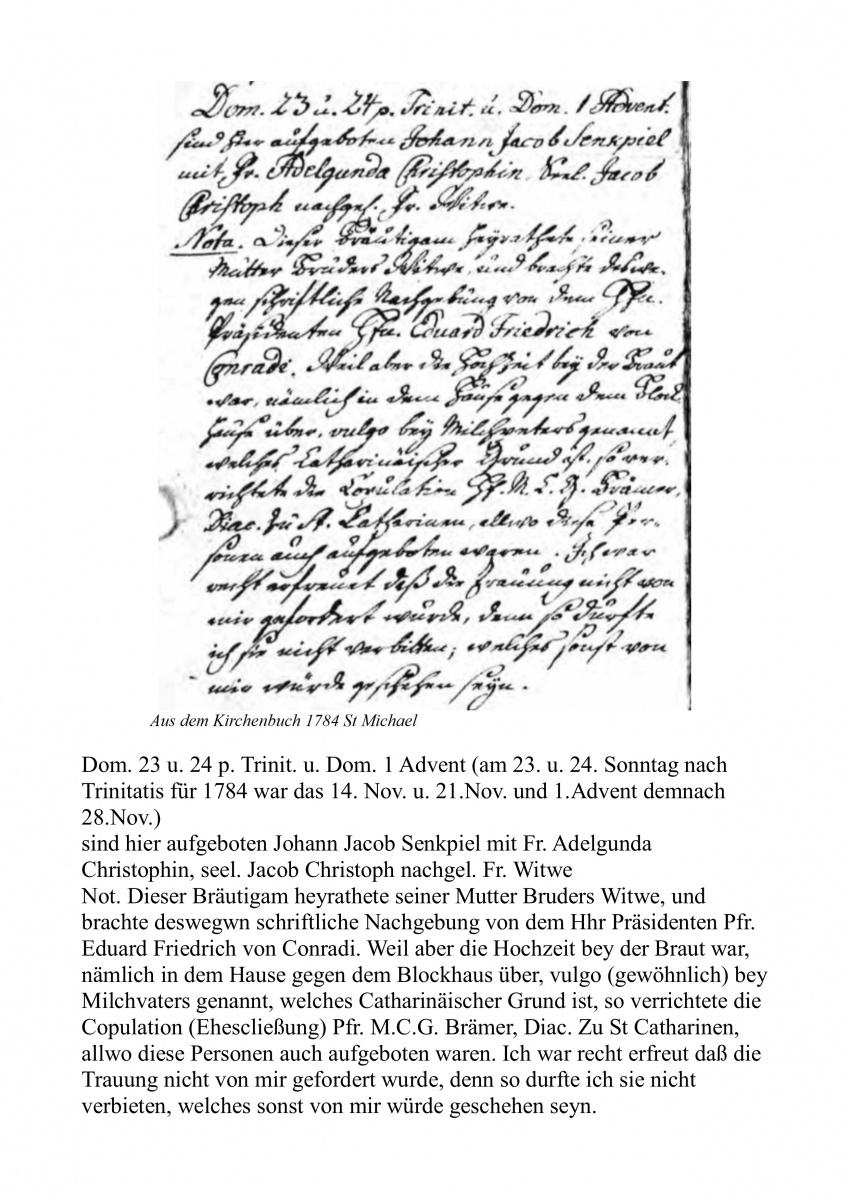 Dom. 23 u. 24 p. Trinit. u. Dom. 1 Advent.
sind hier aufgeboten Johann Jacob Senkpiel
mit Fr. Adelgunda Christophin, Seel. Jacob
Christoph nachgel. Fr. Witwe.
Nota. Dieser Bräutigam heyrathete seiner
Mutter Bruders Witwe, und brachte deswe-
gen schriftliche Nachgebung von dem Hhn.
Präsidenten Hhn. Eduard Friedrich von
Conradi. Weil aber die Hochzeit bey der Braut
war, nämlich in dem Hause gegen dem Block
hause über, vulgo bey Milchpeters genannt,
welches Catharinäischer Grund ist, so ver-
richtete die Copulation HE. M. C. G. Brämer,
Diac. zu St. Catharinen, allwo diese Per-
sonen auch aufgeboten waren. Ich war
recht erfreuet daß die Trauung nicht von
mir gefordert wurde, denn so durfte
ich sie nicht verbitten; welches sonst von
mir würde geschehen seyn.
Aus dem Kirchenbuch 1784 St Michael
Dom. 23 u. 24 p. Trinit. u. Dom. 1 Advent (am 23. u. 24. Sonntag nach
Trinitatis für 1784 war das 14. Nov. u. 21.Nov. und 1.Advent demnach
28.Nov.)
sind hier aufgeboten Johann Jacob Senkpiel mit Fr. Adelgunda
Christophin, seel. Jacob Christoph nachgel. Fr. Witwe
Not. Dieser Bräutigam heyrathete seiner Mutter Bruders Witwe, und
brachte deswegwn schriftliche Nachgebung von dem Hhr Präsidenten Pfr.
Eduard Friedrich von Conradi. Weil aber die Hochzeit bey der Braut war,
nämlich in dem Hause gegen dem Blockhaus über, vulgo (gewöhnlich) bey
Milchvaters genannt, welches Catharinäischer Grund ist, so verrichtete die
Copulation (Ehescließung) Pfr. M.C.G. Brämer, Diac. Zu St Catharinen,
allwo diese Personen auch aufgeboten waren. Ich war recht erfreut daß die
Trauung nicht von mir gefordert wurde, denn so durfte ich sie nicht
verbieten, welches sonst von mir würde geschehen seyn.